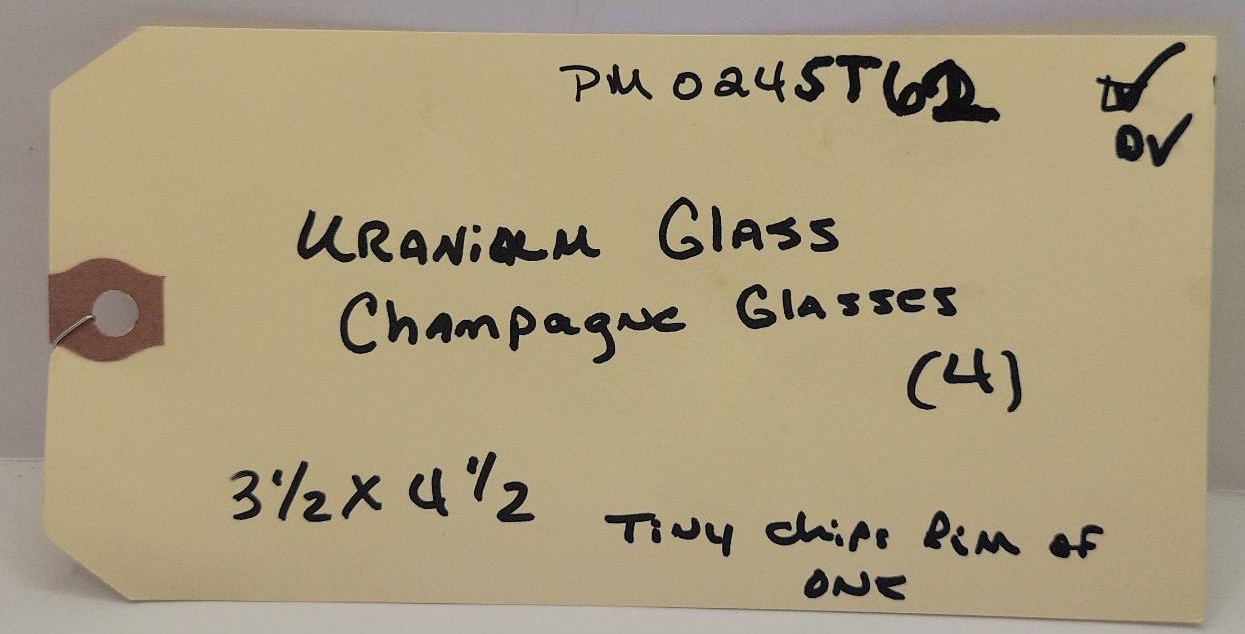 PM0245T62 ☑
DV
URANiUM GlASS
ChAmpagNe GlASSES
(4)
3 1/2 X 4 1/2
TiNy chips RiM of
ONE